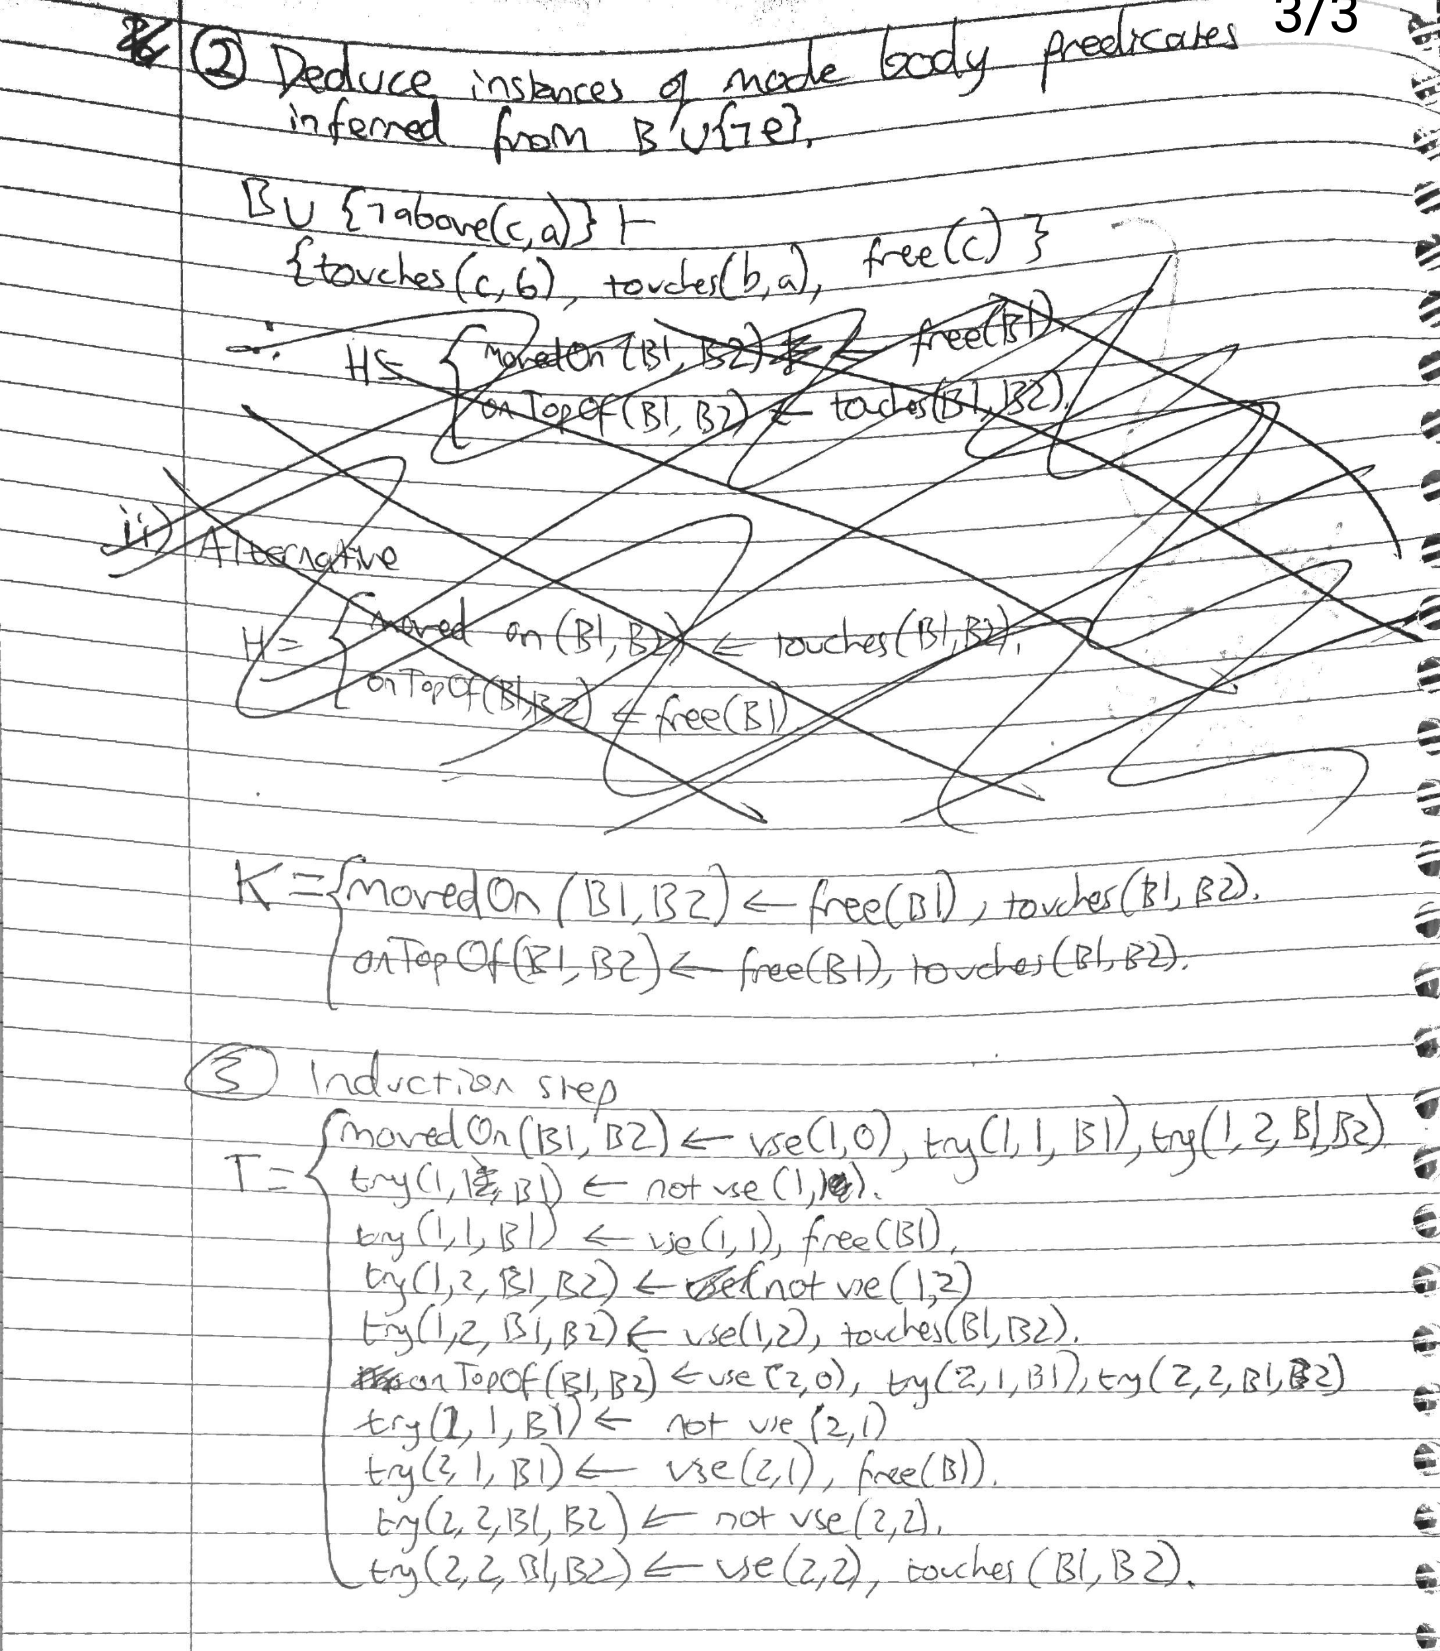 3/3
② Deduce instances of mode body predicates
inferred from B ∪ {¬e}.
B ∪ {¬above(c,a)} ⊢
{touches(c,b), touches(b,a), free(c)}
∴ H = { movedOn(B1, B2) ← free(B1).
onTopOf(B1, B2) ← touches(B1, B2).
ii) Alternative
H = { moved on (B1, B2) ← touches(B1, B2).
onTopOf(B1, B2) ← free(B1)
K = { movedOn(B1, B2) ← free(B1), touches(B1, B2).
onTopOf(B1, B2) ← free(B1), touches(B1, B2).
③ Induction step
T = { movedOn(B1, B2) ← use(1,0), try(1,1,B1), try(1,2,B1,B2)
try(1,1,B1) ← not use(1,1).
try(1,1,B1) ← use(1,1), free(B1).
try(1,2,B1,B2) ← not use(1,2)
try(1,2,B1,B2) ← use(1,2), touches(B1,B2).
onTopOf(B1,B2) ← use(2,0), try(2,1,B1), try(2,2,B1,B2)
try(2,1,B1) ← not use(2,1)
try(2,1,B1) ← use(2,1), free(B1).
try(2,2,B1,B2) ← not use(2,2).
try(2,2,B1,B2) ← use(2,2), touches(B1,B2).